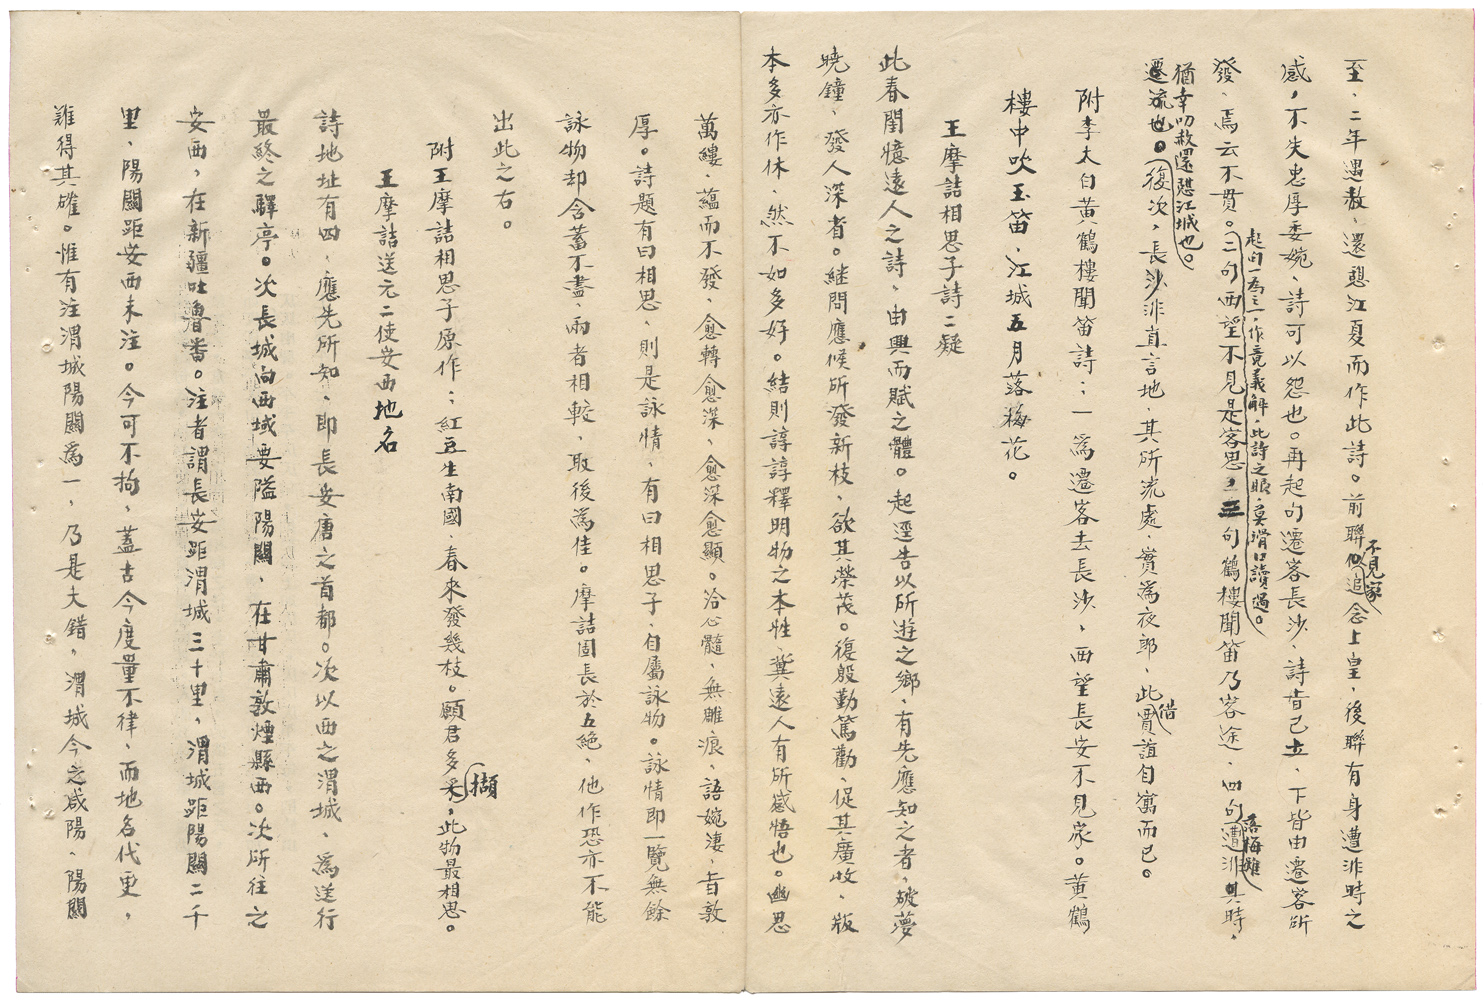 至、二年遇赦、還憩江夏而作此詩。前聯似追念上皇、後聯有身遭非時之
不見家
感，不失忠厚委婉、詩可以怨也。再起句遷客長沙、詩旨已立、下皆由遷客所
發、焉云不貫。二句西望不見是客思，三句鶴樓聞笛乃客途、四句遭非其時、
起句一為二一作竟義解，此詩之眼，莫滑口讀過。
落梅雖
猶幸叨赦還憩江城也。
遷流也。復次，長沙非直言地、其所流處、實為夜郎、此賈誼自寓而已。
借
附李太白黃鶴樓聞笛詩：一為遷客去長沙、西望長安不見家。黃鶴
樓中吹玉笛、江城五月落梅花。
王摩詰相思子詩二疑
此春閨憶遠人之詩、由興而賦之體。起逕告以所遊之鄉、有先應知之者，破夢
曉鐘、發人深者。繼問應候所發新枝、欲其榮茂。復殷勤篤勸、促其廣收、版
本多亦作休、然不如多好。結則諄諄釋明物之本性、冀遠人有所感悟也。幽思
萬縷、蘊而不發、愈轉愈深、愈深愈顯。洽心髓、無雕痕、語婉淒、旨敦
厚。詩題有曰相思、則是詠情、有曰相思子、自屬詠物。詠情即一覽無餘
詠物却含蓄不盡、兩者相較、取後為佳。摩詰固長於五絕、他作恐亦不能
出此之右。
附王摩詰相思子原作：紅豆生南國、春來發幾枝。願君多采，此物最相思。
擷
王摩詰送元二使安西地名
詩地址有四、應先所知、即長安唐之首都。次以西之渭城、為送行
最終之驛亭。次長城向西域要隘陽關、在甘肅敦煌縣西。次所往之
安西，在新疆吐魯番。注者謂長安距渭城三十里，渭城距陽關二千
里、陽關距安西未注。今可不拘，蓋古今度量不律、而地名代更，
難得其確。惟有注渭城陽關為一、乃是大錯，渭城今之咸陽、陽關